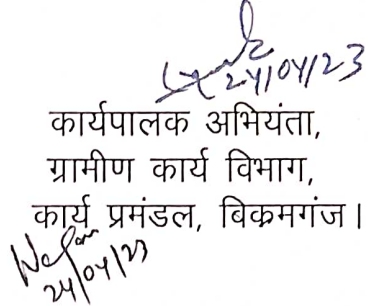 24/04/23
कार्यपालक अभियंता,
ग्रामीण कार्य विभाग,
कार्य प्रमंडल, बिक्रमगंज।
24/04/23